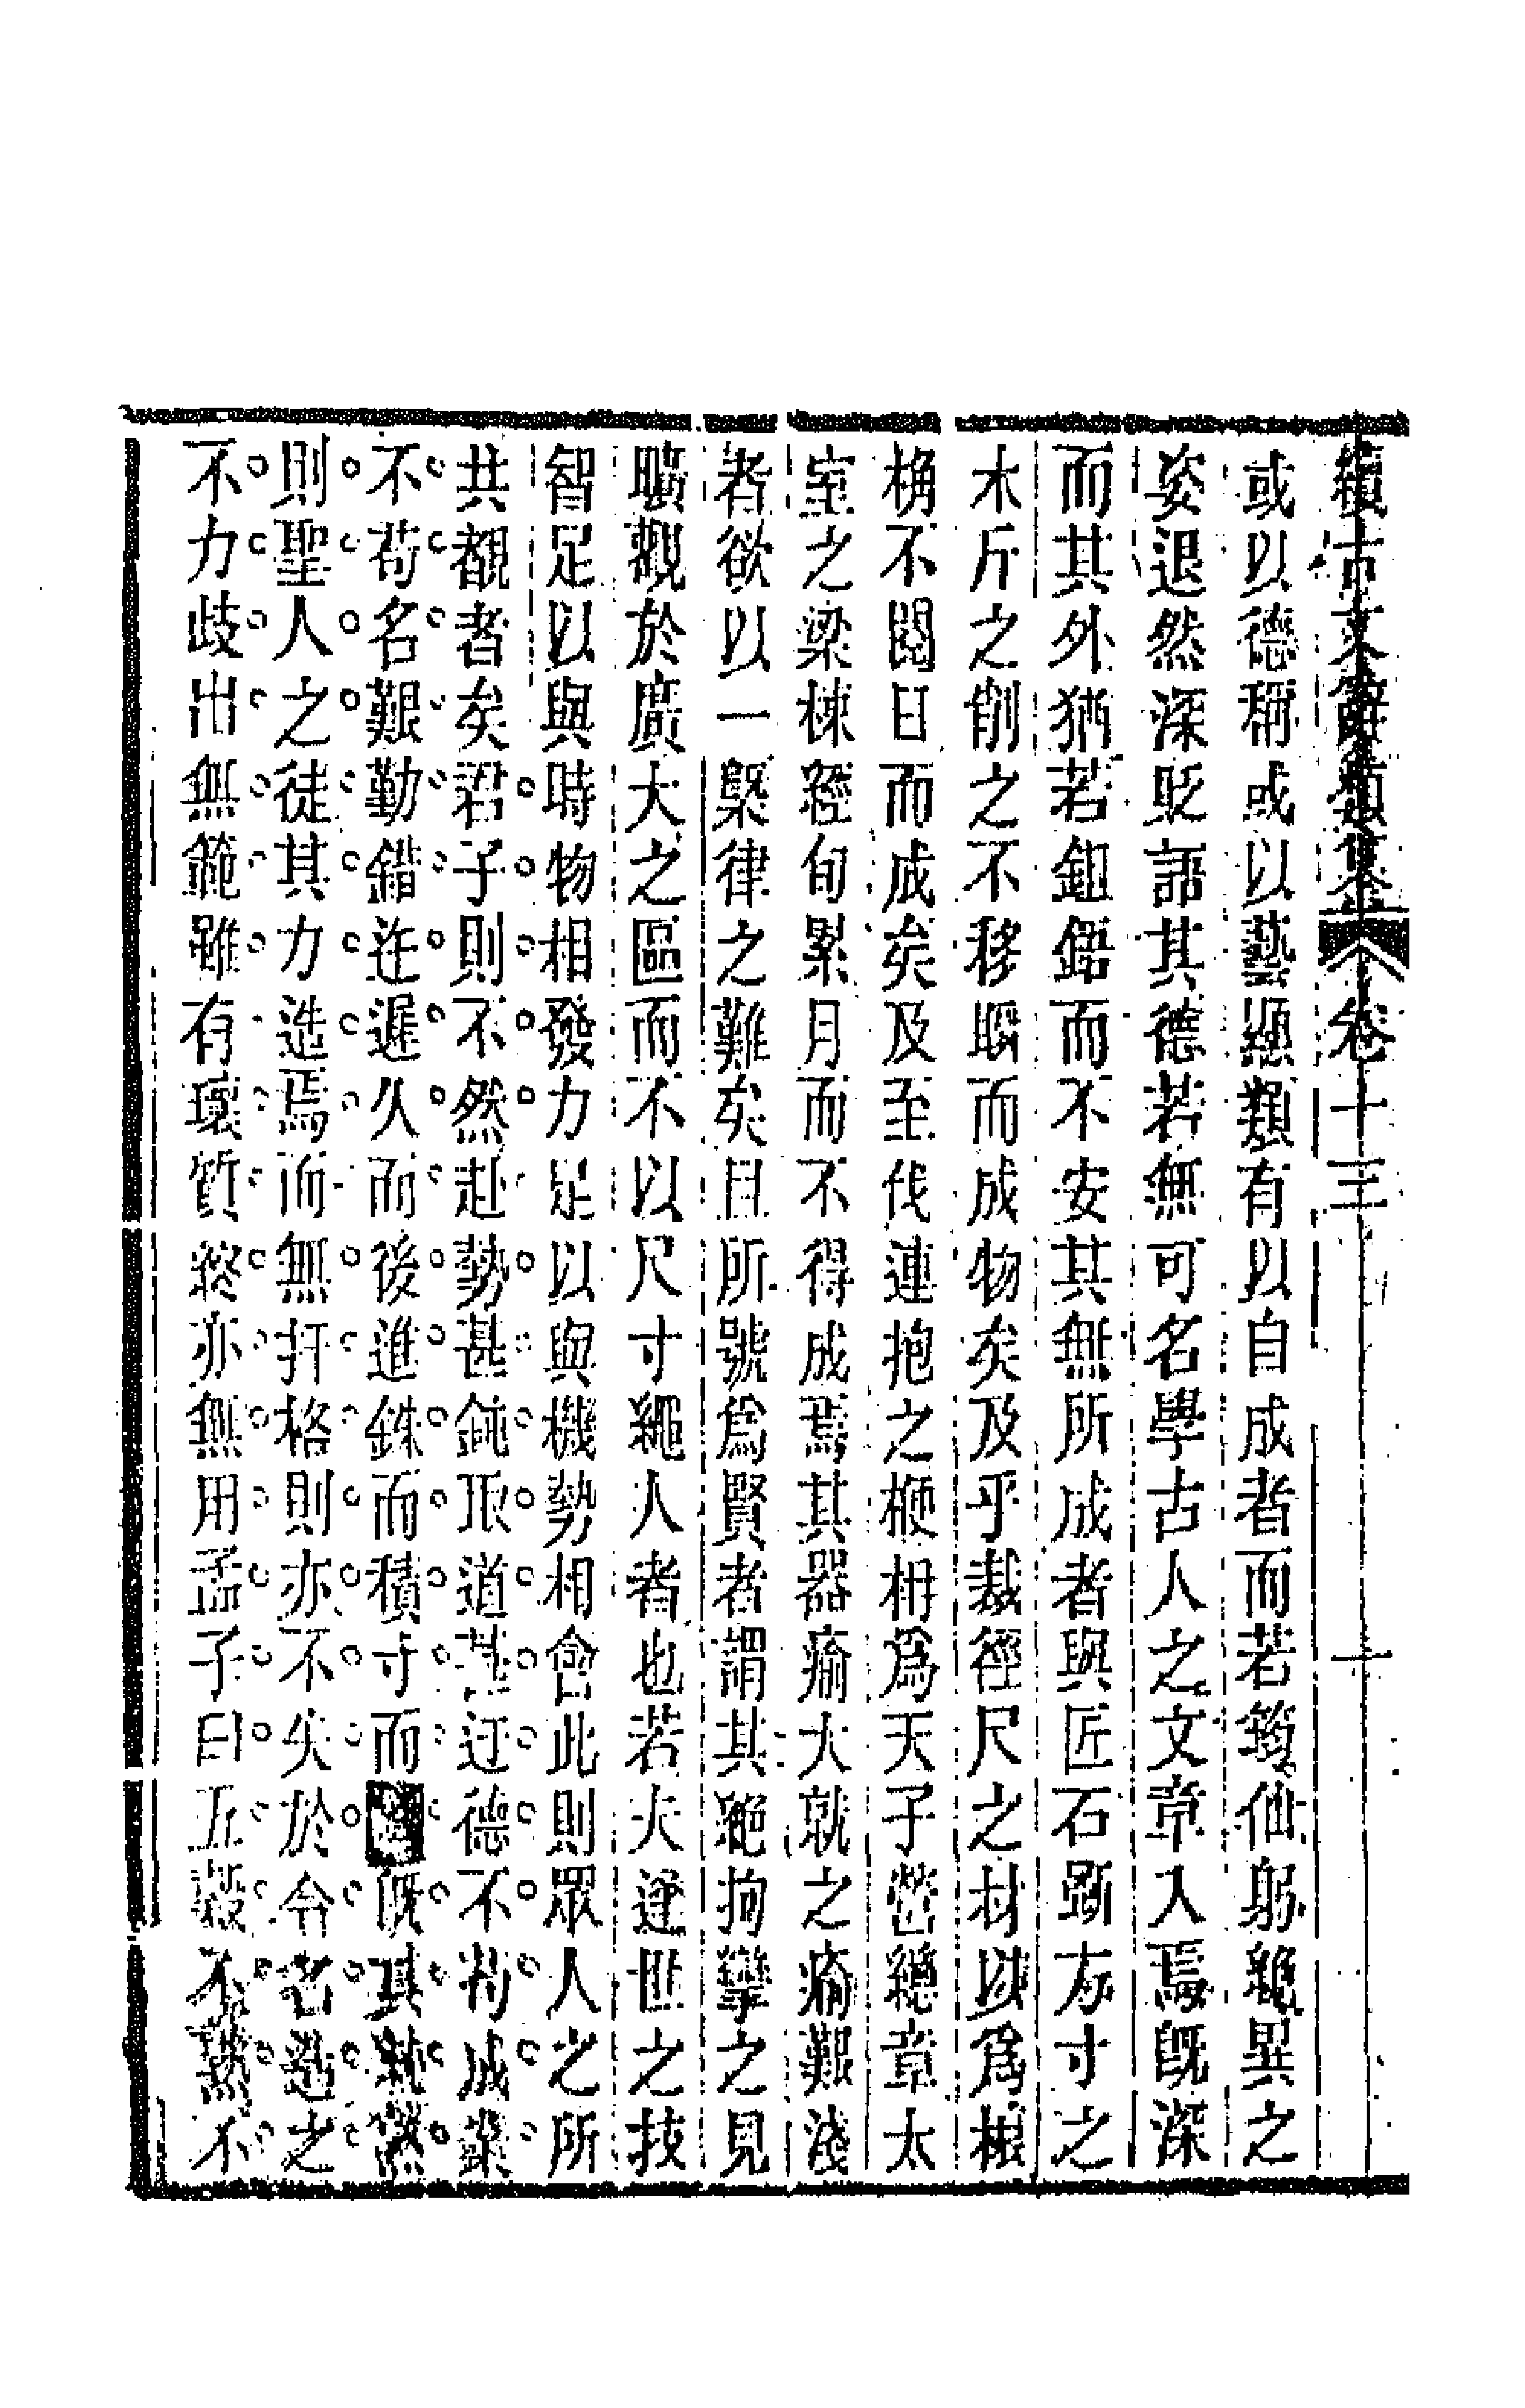 續古文辭類纂 卷十三 十
或以德稱或以藝顯類有以自成者而若筠仙躬絶異之
姿退然深貶語其德若無可名學古人之文章入焉旣深
而其外猶若鉏鋙而不安其無所成者與匠石斲方寸之
木斤之削之不移瞬而成物矣及乎裁徑尺之材以爲榱
桷不閱日而成矣及至伐連抱之楩枏爲天子營總章太
室之梁棟經旬累月而不得成焉其器瘉大就之瘉艱淺
者欲以一槩律之難矣且所號爲賢者謂其絶拘攣之見
曠觀於廣大之區而不以尺寸繩人者也若夫逢世之技
智足以與時物相發力足以與機勢相會此則眾人之所
共覩者矣君子則不然赴勢甚鈍取道甚迂德不苟成業
不苟名艱勤錯迕遲久而後進銖而積寸而 旣其純熟
則聖人之徒其力造焉而無扞格則亦不失於令名造之
不力歧出無範雖有瓌質終亦無用孟子曰五穀不熟不